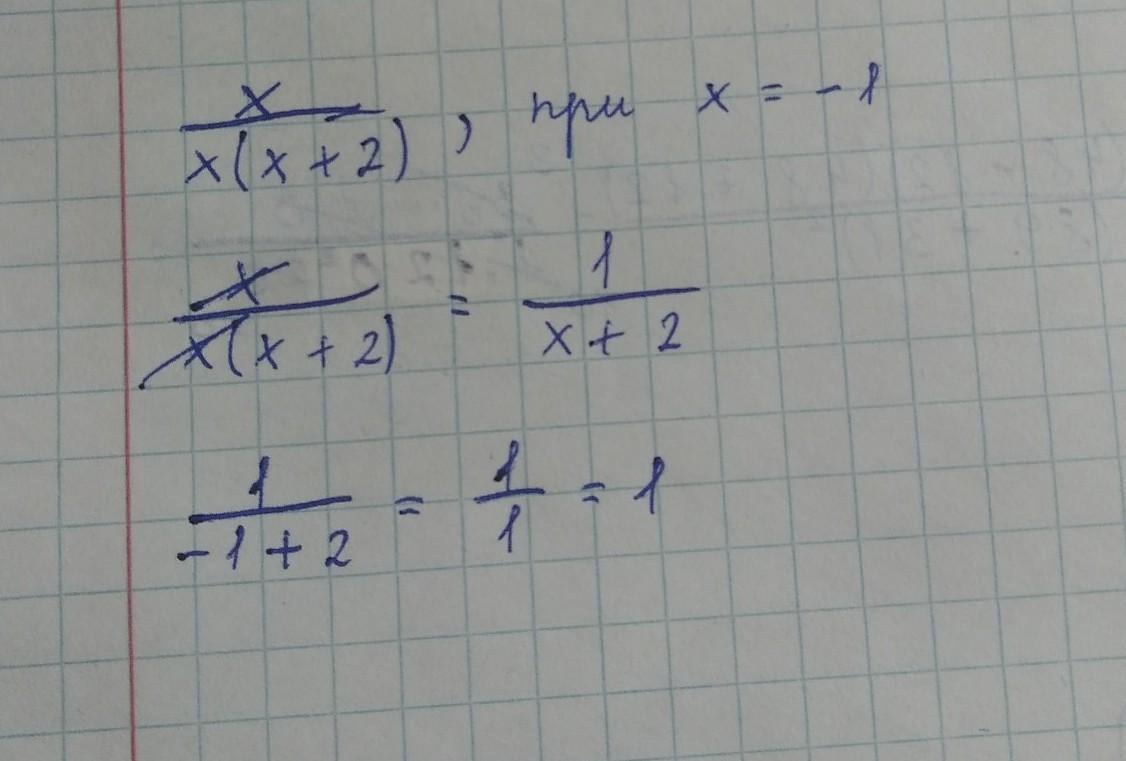 x / x(x + 2), при x = -1
x / x(x + 2) = 1 / x + 2
1 / -1 + 2 = 1 / 1 = 1